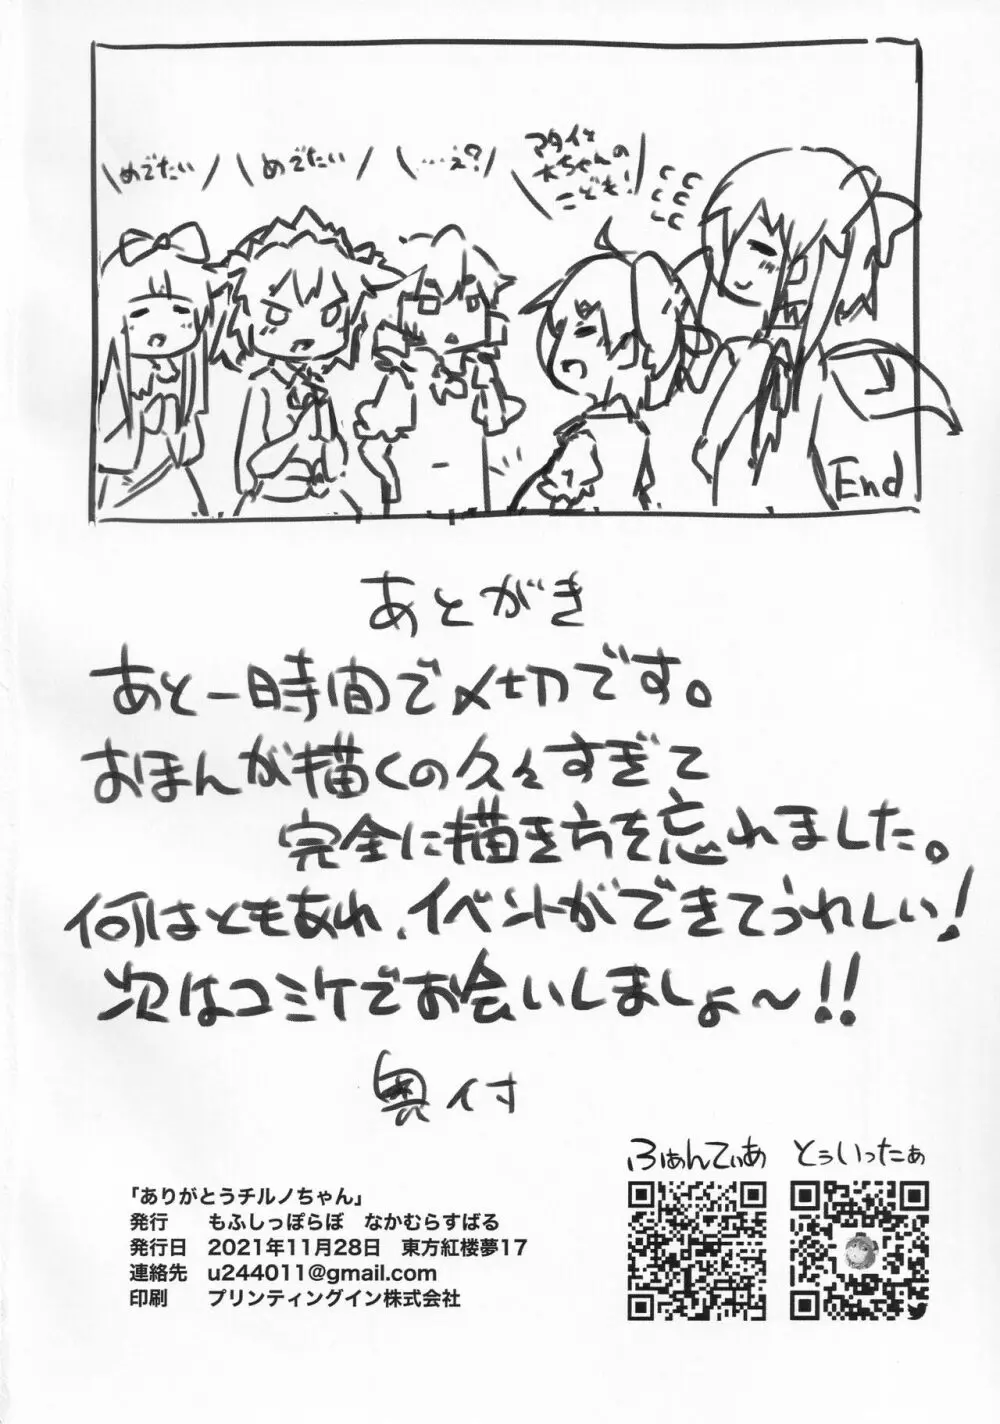 めでたい
めでたい
…え?
アタイと
大ちゃんの
こども!
End
あとがき
あと一時間で〆切です。
おほんが描くの久々すぎて
完全に描き方を忘れました。
何はともあれ、イベントができてうれしい!
次はコミケでお会いしましょ〜!!
奥付
ふぁんてぃあ とぅいったぁ
「ありがとうチルノちゃん」
発行 もふしっぽらぼ なかむらすばる
発行日 2021年11月28日 東方紅楼夢17
連絡先 u244011@gmail.com
印刷 プリンティングイン株式会社